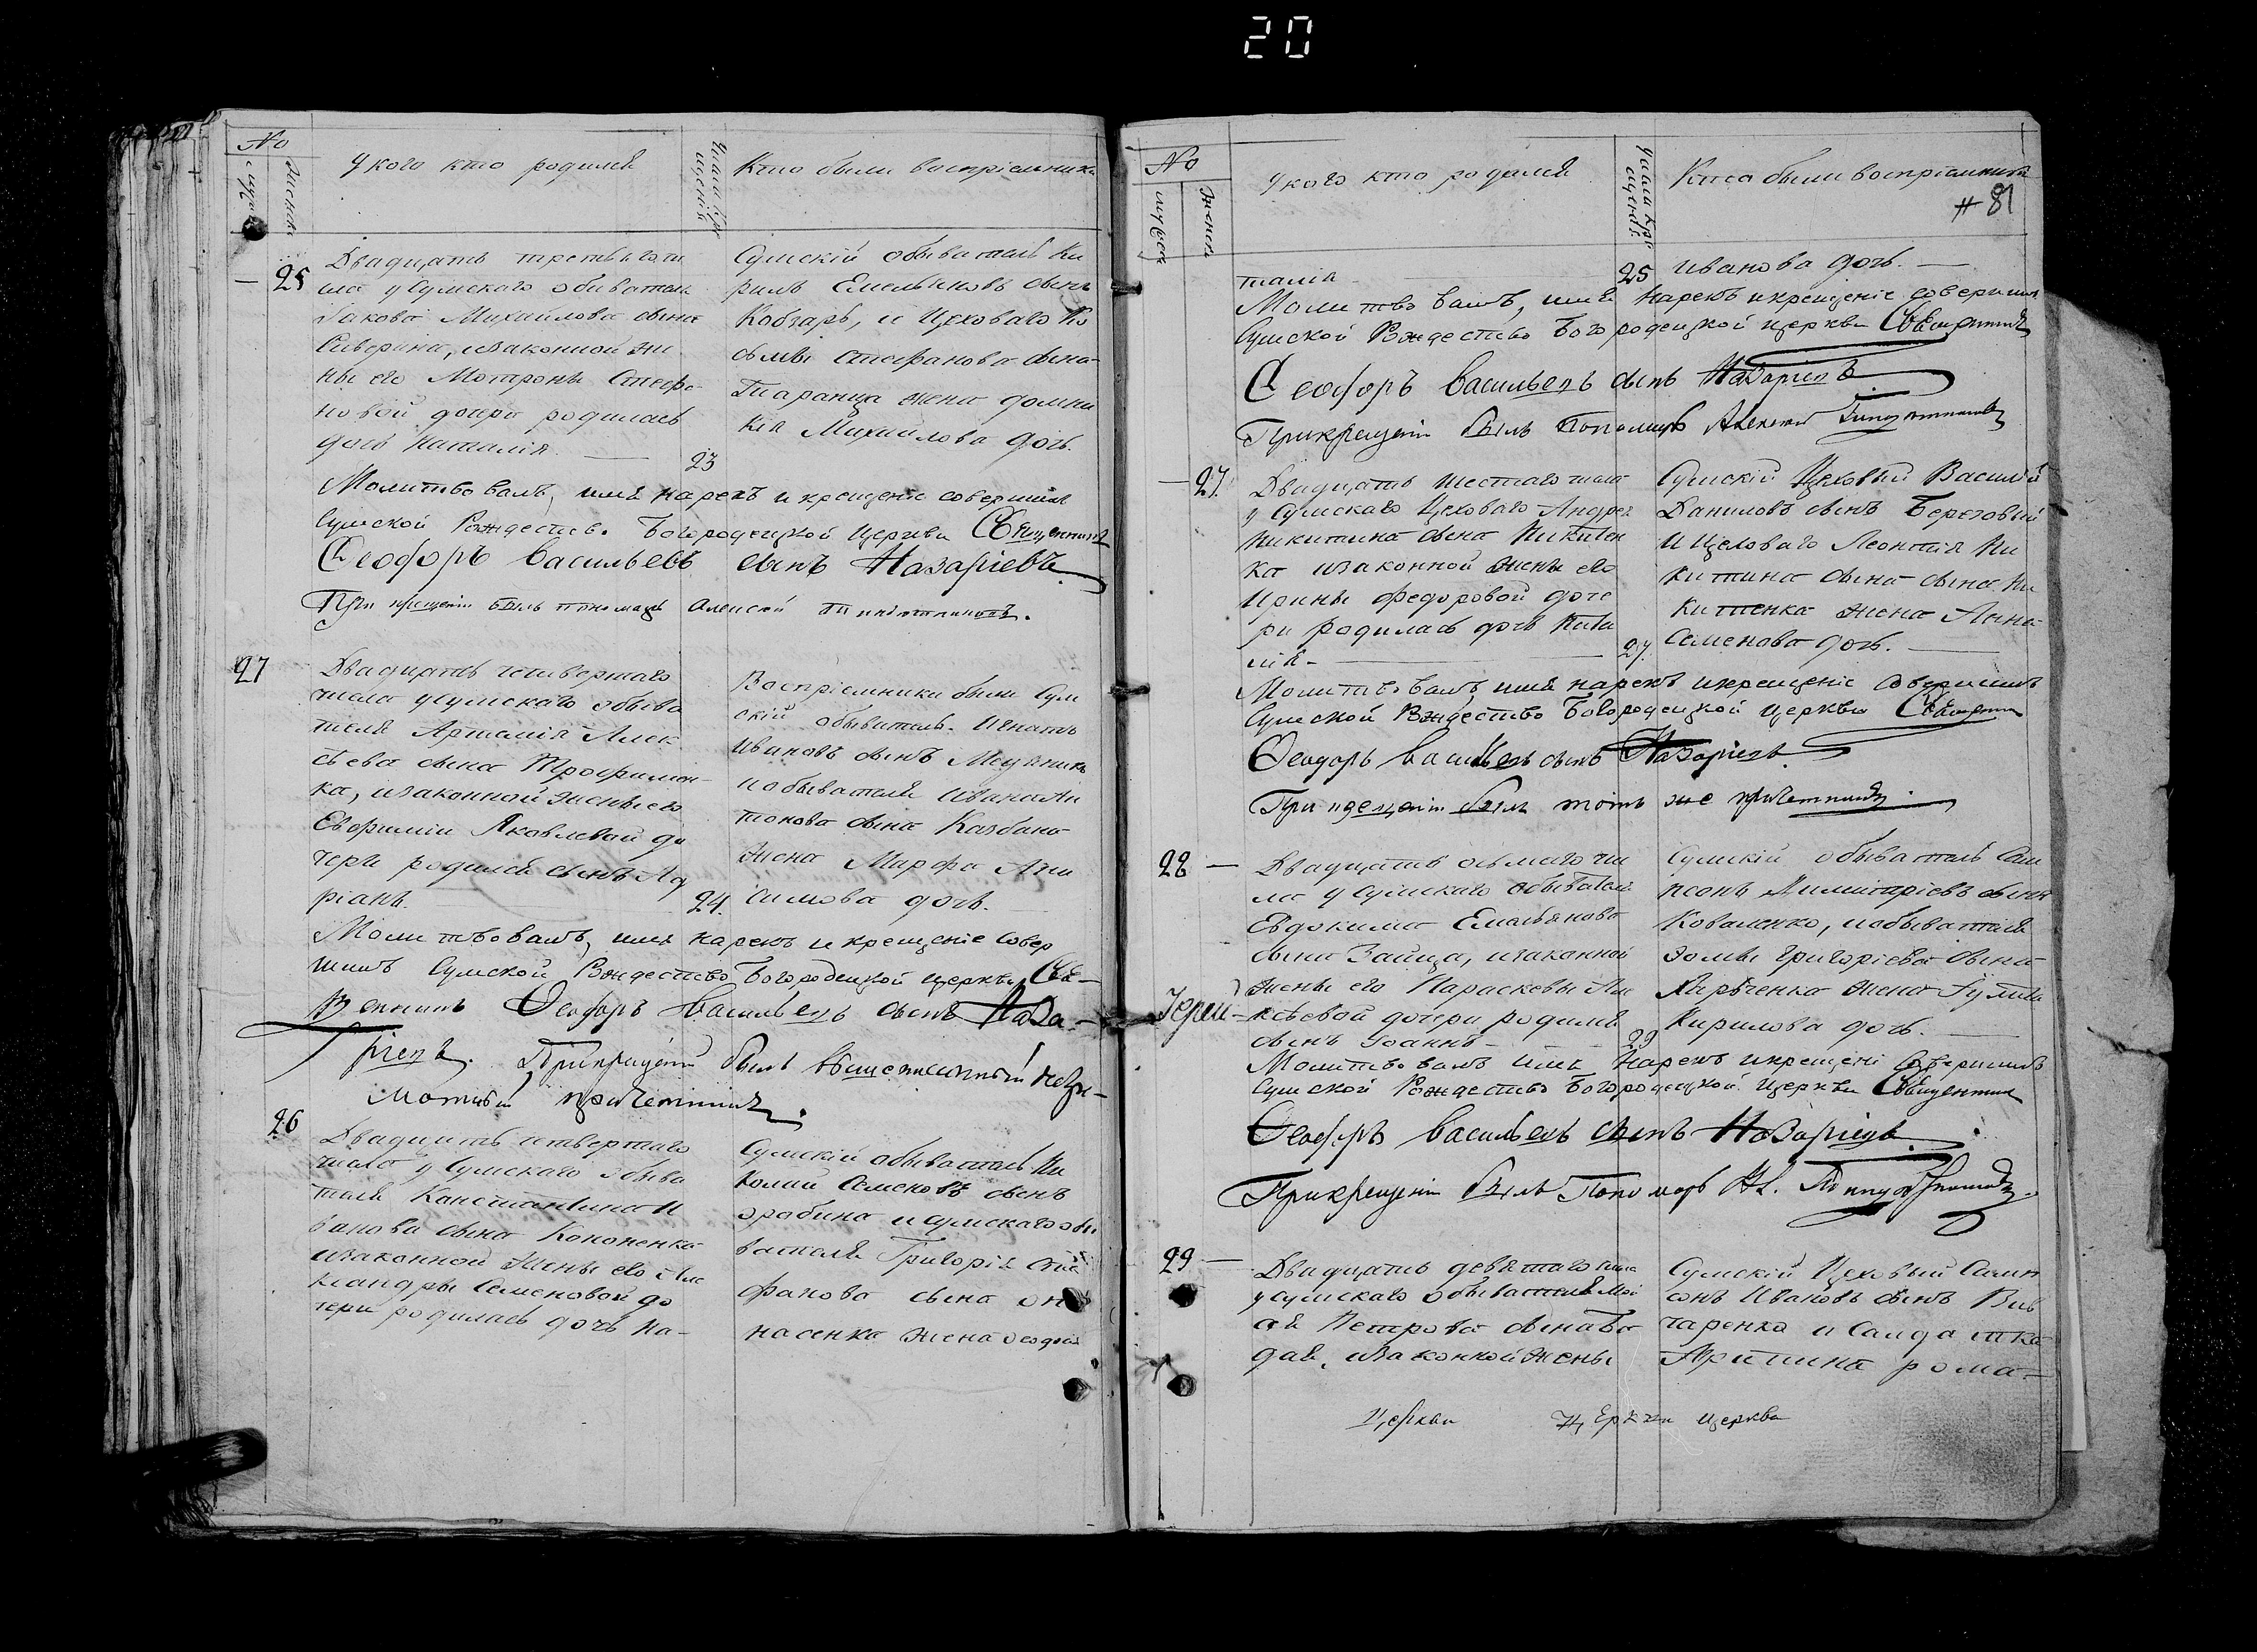 20
№
мужск
женска
У кого кто родился
Кто были восприемники
25
Двадцать третьяго чи
сла у Сумскаго обывателя
Іакова Михайлова сына
Сиверина, изаконной же
ны его Мотроны Стефа
новой дочери родилась
дочь Наталія. 23
Сумскій обыватель Ки
рилъ Емельяновъ сынъ
Кобзарь, и Цеховаго Ко
сьмы Стефанова сына
Таранца жена Домни
кія Михайлова дочь.
Молитвовалъ, имя нарекъ и крещеніе совершилъ
Сумской Рождество Богородецкой Церкви Священникъ
Ѳеодоръ Васильевъ сынъ Назаріевъ
При крещеніи былъ пономарь Алексей
27
Двадцать четвертаго
числа у Сумскаго обыва
теля Артемія Алек
сѣева сына Трофимен
ка, изаконной жены его
Евфиміи Яковлевой до
чери родился сынъ Ад
ріанъ. 24.
Восприемники были Сум
скій обыватель Игнатъ
Ивановъ сынъ Медяникъ
и обывателя Ивана Ан
тонова сына Казбана
жена Марфа Ани
симова дочь.
Молитвовалъ, имя нарекъ и крещеніе совер
шилъ Сумской Рождество Богородецкой церкви Свя-
щенникъ Ѳеодоръ Васильевъ сынъ Наза-
ріевъ. При крещеніи былъ вышеписанный негра-
мотный причетникъ.
26
Двадцать четвертаго
числа у Сумскаго обыва
теля Константина И
ванова сына Кононенка
изаконной жены его Але
ксандры Семеновой до
чери родилась дочь На-
Сумскій обыватель Ни
колай Семеновъ сынъ
Дробина и Сумскаго обы
вателя Григорія Сте
фанова сына
насенка жена Ѳеодосія
№
мужеск
женск
У кого кто родился
Кто были восприемники
# 81
талія 25
Иванова дочь.
Молитвовалъ, имя нарекъ и крещеніе совершилъ
Сумской Рождество Богородецкой церкви Священникъ
Ѳеодоръ Васильевъ сынъ Назаріевъ
При крещеніи былъ Пономарь Алексей
27.
Двадцать шестаго числа
у Сумскаго Цеховаго Андрея
Никитина сына Никитен
ка изаконной жены его
Ирины Федоровой доче
ри родилась дочь
27.
Сумскій Цеховый Василій
Даниловъ сынъ Березовый
и Цеховаго Леонтія Ни
китина сына сына Ни
китенка жена Анна
Семенова дочь.
Молитвовалъ, имя нарекъ и крещеніе совершилъ
Сумской Рождество Богородецкой церкви Священникъ
Ѳеодоръ Васильевъ сынъ Назаріевъ.
При крещеніи былъ тотъ же причетникъ.
28
Двадцать осьмаго чи
сла у Сумскаго обывателя
Евдокима Емельянова
сына Зайца, изаконной
жены его Параскевы Але
ксѣевой дочери родился
сынъ Іоаннъ 29
Сумскій обыватель Сам
псонъ Димитріевъ сынъ
Коваленко, и обывателя
Зомы Григоріева сына
Кирѣченка жена
Кирилова дочь.
Молитвовалъ имя нарекъ и крещеніе совершилъ
Сумской Рождество Богородецкой церкви Священникъ
Ѳеодоръ Васильевъ сынъ Назаріевъ.
При крещеніи былъ Пономарь Ал.
29
Двадцать девятаго числа
у Сумскаго обывателя Мои
сея Петрова сына Бо
дая, изаконной жены
Сумскій Цеховый Самп
сонъ Ивановъ сынъ Вив
чаренко и Солдатка
Христина Рома-
Церкви Церкви церкви